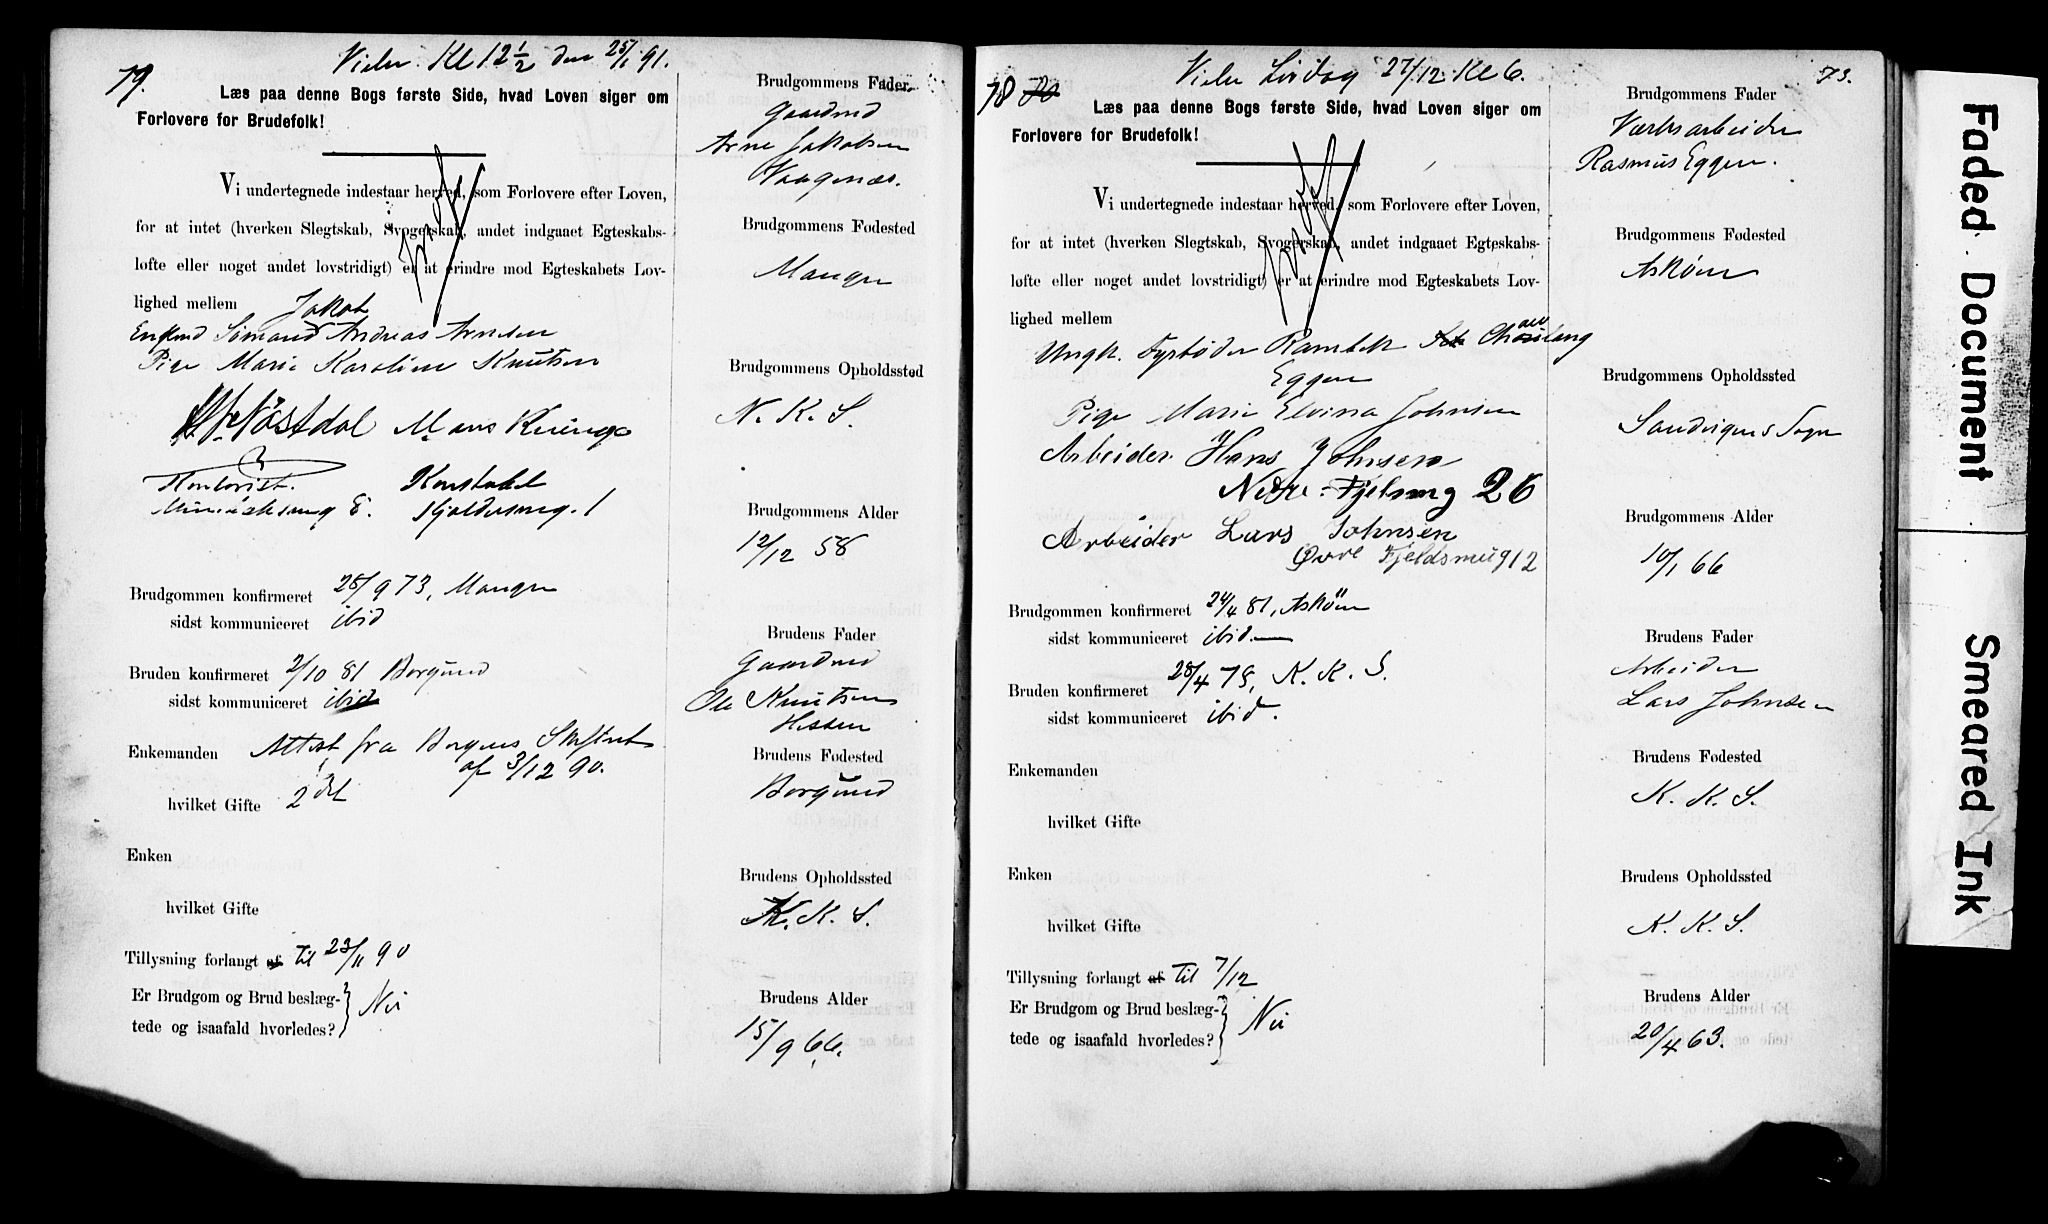 79.
Vies Kl 12 1/2 den 25/1 91.
Læs paa denne Bogs første Side, hvad Loven siger om
Forlovere for Brudefolk!
Vi undertegnede indestaar herved, som Forlovere efter Loven,
for at intet (hverken Slegtskab, Svogerskab, andet indgaaet Egteskabs-
løfte eller noget andet lovstridigt) er at erindre mod Egteskabets Lov-
lighed mellem
Jakob
Enkemd Sömand Andreas Arnesen
Pige Marie Karoline Knutsen
Nöstdal Mons Kvinge
Kontorist. Konstabel
8. Skjoldersmug. 1
Brudgommen konfirmeret 28/9 73, Manger
sidst kommuniceret ibid
Bruden konfirmeret 2/10 81 Borgund
sidst kommuniceret ibid
Enkemanden Attest fra Bergens Skifteret
af 3/12 90.
hvilket Gifte 2det
Enken
hvilket Gifte
Tillysning forlangt af til 23/11 90
Er Brudgom og Brud beslæg-
tede og isaafald hvorledes? Nei
Brudgommens Fader
Gaardmd
Arne Jakobsen
Vaagenæs.
Brudgommens Fødested
Manger
Brudgommens Opholdssted
N. K. S.
Brudgommens Alder
12/12 58
Brudens Fader
Gaardmd
Ole Knutsen
Hessen
Brudens Fødested
Borgund
Brudens Opholdssted
K. K. S.
Brudens Alder
15/9 66.
78 80
Vies Lördag 27/12 Kl 6.
73.
Læs paa denne Bogs første Side, hvad Loven siger om
Forlovere for Brudefolk!
Vi undertegnede indestaar herved, som Forlovere efter Loven,
for at intet (hverken Slegtskab, Svogerskab, andet indgaaet Egteskabs-
løfte eller noget andet lovstridigt) er at erindre mod Egteskabets Lov-
lighed mellem
Ungk. Fyrböder
Eggen
Pige Marie Elvina Johnsen
Arbeider Hans Johnsen
Nedre Fjelsmug 26
Arbeider Lars Johnsen
Øvre Fjeldsmug 12
Brudgommen konfirmeret 24/4 81, Asköen
sidst kommuniceret ibid.
Bruden konfirmeret 28/4 78, K. K. S.
sidst kommuniceret ibid.
Enkemanden
hvilket Gifte
Enken
hvilket Gifte
Tillysning forlangt af til 7/12
Er Brudgom og Brud beslæg-
tede og isaafald hvorledes? Nei
Brudgommens Fader
Værksarbeider
Rasmus Eggen.
Brudgommens Fødested
Asköen
Brudgommens Opholdssted
Sandvigens Sogn
Brudgommens Alder
10/1 66
Brudens Fader
Arbeider
Lars Johnsen
Brudens Fødested
K. K. S.
Brudens Opholdssted
K. K. S.
Brudens Alder
20/4 63.
Faded Document
Smeared Ink